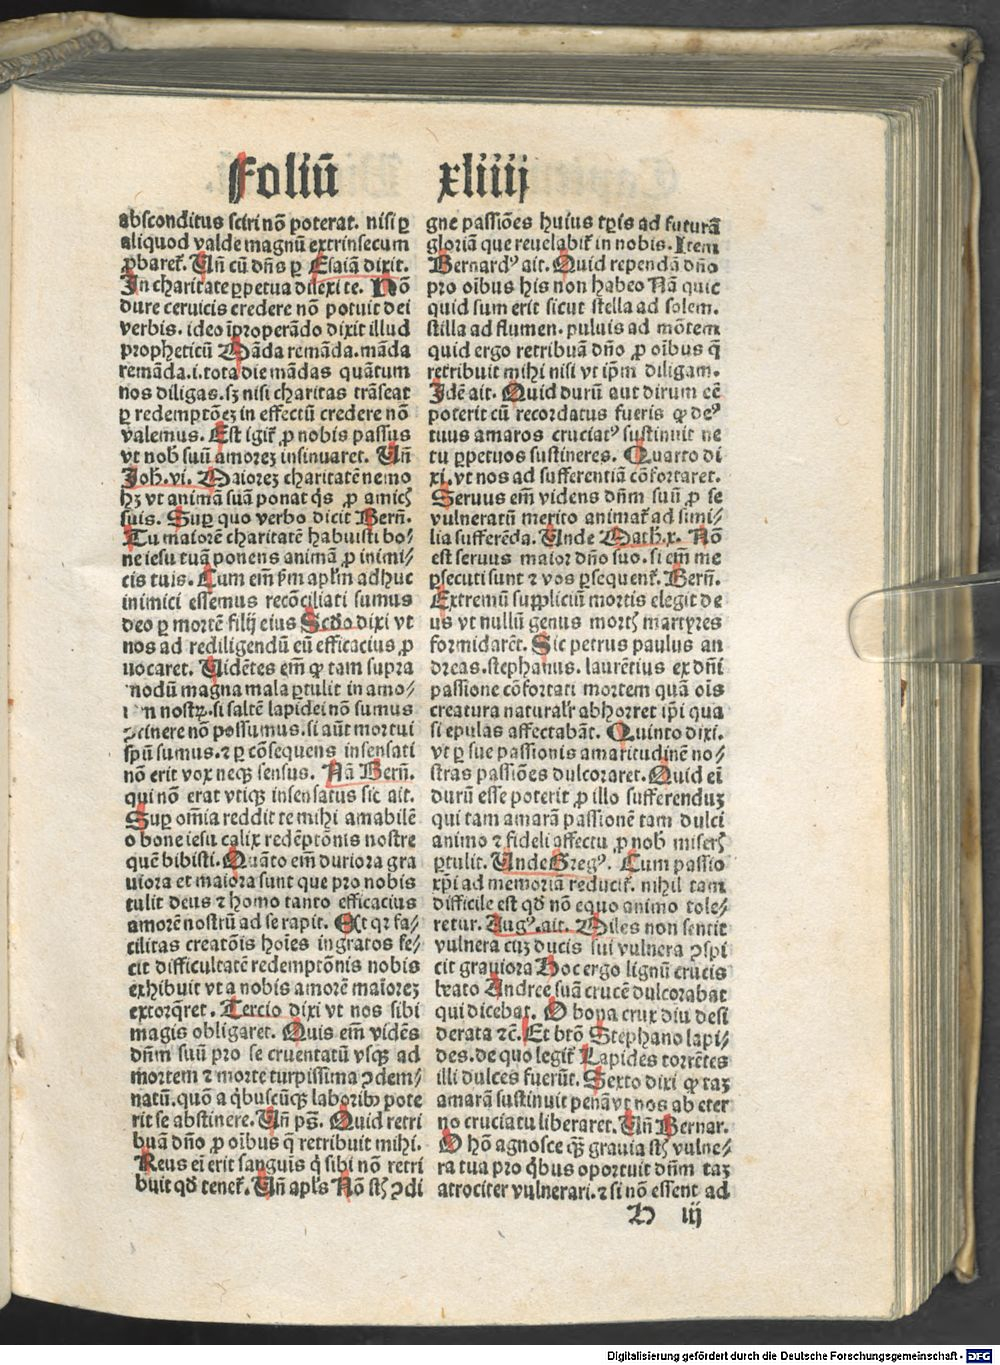 Foliū xliiij
absconditus sciri nō poterat. nisi ꝑ
aliquod valde magnū extrinsecum
ꝓbaret̄. Un̄ cū dn̄s ꝑ Esaiā dixit.
In charitate ꝑpetua dilexi te. Nō
dure ceruicis credere nō potuit dei
verbis. ideo īproperādo dixit illud
propheticū Māda remāda. māda
remāda .i. tota die mādas quātum
nos diligas. sꝫ nisi charitas trāseat
ꝑ redemptōeꝫ in effectū credere nō
valemus. Est igit̄ ꝓ nobis passus
vt nob̄ suū amoreꝫ insinuaret. Un̄
Joh. vi. Maioreꝫ charitatē nemo
hꝫ vt animā suā ponat q̄s ꝓ amicꝭ
suis. Suꝑ quo verbo dicit Bern̄.
Tu maiorē charitatē habuisti bo⸗
ne iesu tuā ponens animā ꝓ inimi⸗
cis tuis. Cum em̄ ẜm apl̄m adhuc
inimici essemus recōciliati sumus
deo ꝑ mortē filij eius Scd̄o dixi vt
nos ad rediligendū eū efficacius ꝓ
uocaret. Uidētes em̄ ꝙ tam supra
modū magna mala ꝑtulit in amo⸗
nostꝝ. si saltē lapidei nō sumus
ꝯtinere nō possumus. si aūt mortui
sp̄u sumus. ⁊ ꝑ cōsequens insensati
nō erit vox neqꝫ sensus. Nā Bern̄.
qui nō erat vtiqꝫ insensatus sic ait.
Suꝑ om̄ia reddit te mihi amabilē
o bone iesu calix redēptōnis nostre
quē bibisti. Quāto em̄ duriora gra
uiora et maiora sunt que pro nobis
tulit deus ⁊ homo tanto efficacius
amorē nostrū ad se rapit. Et qꝛ fa⸗
cilitas creatōis hoīes ingratos fe⸗
cit difficultatē redemptōnis nobis
exhibuit vt a nobis amorē maioreꝫ
extorq̄ret. Tercio dixi vt nos sibi
magis obligaret. Quis em̄ vidēs
dn̄m suū pro se cruentatū vsqꝫ ad
mortem ⁊ morte turpissima ꝯdem⸗
natū. quō a q̄buscūqꝫ laboribꝫ pote
rit se abstinere. Un̄ ps̄. Quid retri
buā dn̄o ꝓ oībus q̄ retribuit mihi.
Reus ei erit sanguis q̄ sibi nō retri
buit qd̄ tenet̄. Un̄ apl̄s Nō st̄ ꝯdi
gne passiōes huius tꝑis ad futurā
gloriā que reuelabit̄ in nobis. Item
Bernardꝰ ait. Quid rependā dn̄o
pro oībus his non habeo Nā quic
quid sum erit sicut stella ad solem.
stilla ad flumen. puluis ad mōtem
quid ergo retribuā dn̄o ꝓ oībus q̄
retribuit mihi nisi vt ip̄m diligam.
Idē ait. Quid durū aut dirum eē
poterit cū recordatus fueris ꝙ deꝰ
tuus amaros cruciatꝰ sustinuit ne
tu ꝑpetuos sustineres. Quarto di
xi. vt nos ad sufferentiā cōfortaret.
Seruus em̄ videns dn̄m suū ꝓ se
vulneratū merito animat̄ ad simi⸗
lia sufferēda. Unde Math. x. Nō
est seruus maior dn̄o suo. si em̄ me
ꝑsecuti sunt ⁊ vos ꝑsequent̄. Bern̄.
Extremū suppliciū mortis elegit de
us vt nullū genus mortꝭ martyres
formidarēt. Sic petrus paulus an
dreas. stephanus. laurētius ex dn̄i
passione cōfortati mortem quā oīs
creatura naturalr̄ abhorret ip̄i qua
si epulas affectabāt. Quinto dixi.
vt ꝑ sue passionis amaritudinē no⸗
stras passiōes dulcoraret. Quid ei
durū esse poterit ꝓ illo sufferenduꝫ
qui tam amarā passionē tam dulci
animo ⁊ fideli affectu ꝓ nob̄ miserꝭ
ꝑtulit. Unde Gregꝰ. Cum passio
xp̄i ad memoriā reducit̄. nihil tam
difficile est qd̄ nō equo animo tole⸗
retur. Augꝰ. ait. Miles non sentit
vulnera cuꝫ ducis sui vulnera ꝯspi
cit grauiora Hoc ergo lignū crucis
beato Andree suā crucē dulcorabat
qui dicebat. O bona crux diu desi
derata ⁊c̄. Et btō Stephano lapi⸗
des. de quo legit̄ Lapides torrētes
illi dulces fuerūt. Sexto dixi ꝙ taꝫ
amarā sustinuit penā vt nos ab eter
no cruciatu liberaret. Un̄ Bernar.
O hō agnosce qꝫ grauia st̄ vulne⸗
ra tua pro q̄bus oportuit dn̄m taꝫ
atrociter vulnerari. ⁊ si nō essent ad
H iij
Digitalisierung gefördert durch die Deutsche Forschungsgemeinschaft - DFG